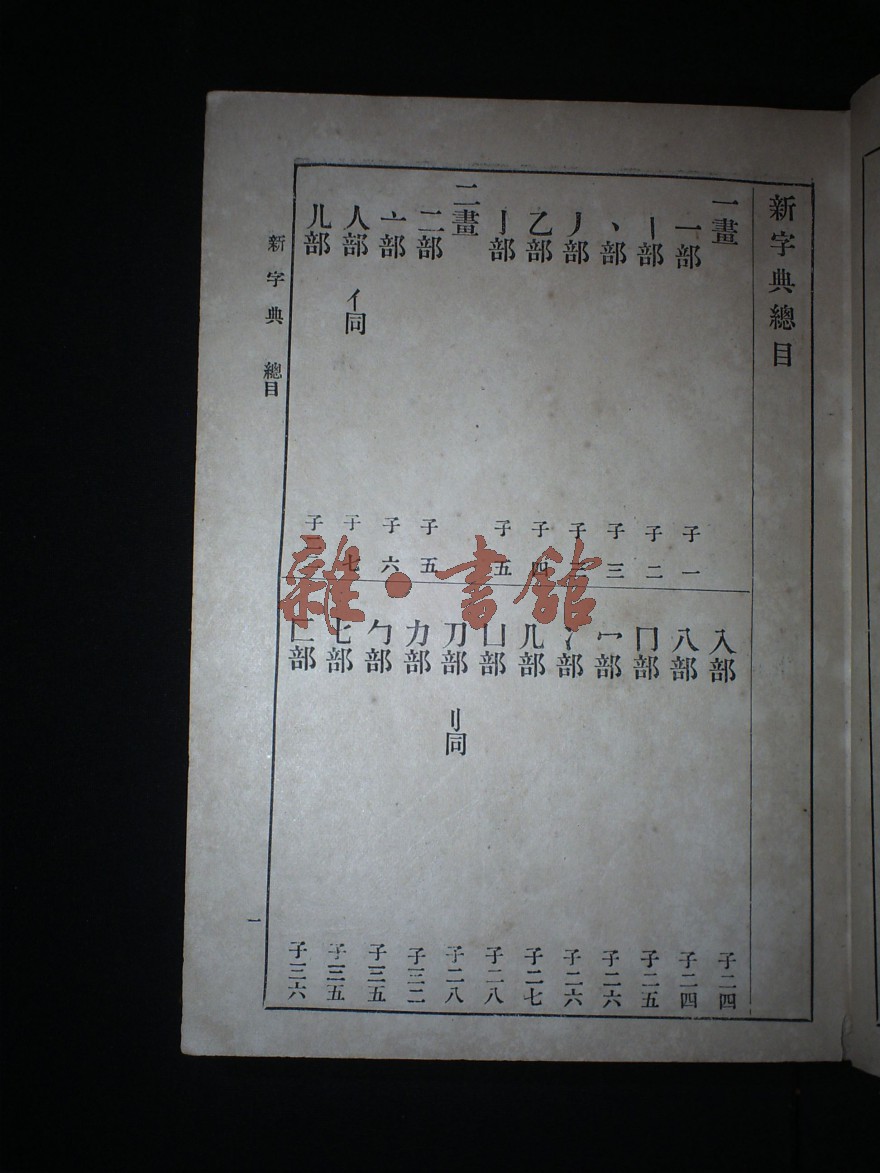 新字典總目
一畫
一部 子一
丨部 子二
丶部 子三
丿部 子三
乙部 子四
亅部 子五
二畫
二部 子五
亠部 子六
人部 亻同 子七
儿部 子二
入部 子二四
八部 子二四
冂部 子二五
冖部 子二六
冫部 子二六
几部 子二七
凵部 子二八
刀部 刂同 子二八
力部 子三二
勹部 子三五
匕部 子三五
匚部 子三六
新字典 總目
一
雜·書館